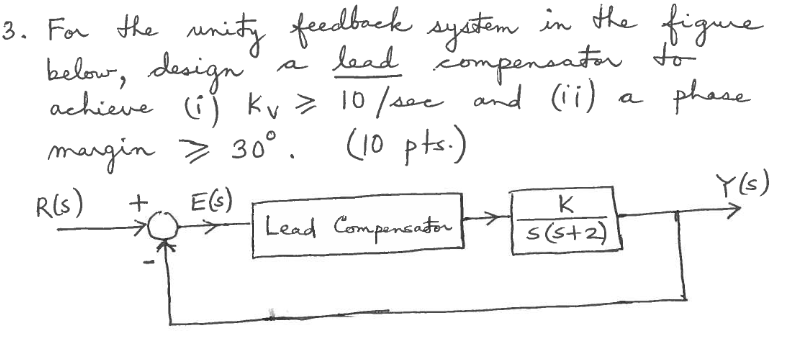 3. For the unity feedback system in the figure
below, design a lead compensator to
achieve (i) Kv ⩾ 10/sec and (ii) a phase
margin ⩾ 30°. (10 pts.)
R(s) + E(s) Lead Compensator K Y(s)
s(s+2)
-